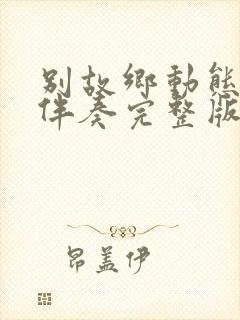 别故鄉動態
伴奏完整版
昂盖伊